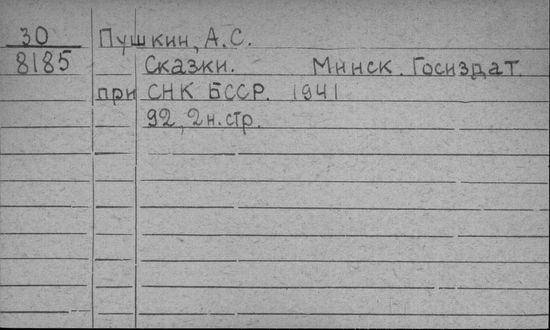 30 Пушкин, А.С.
8185 Сказки. Минск. Госиздат.
при СНК БССР. 1941
92, 2н.стр.